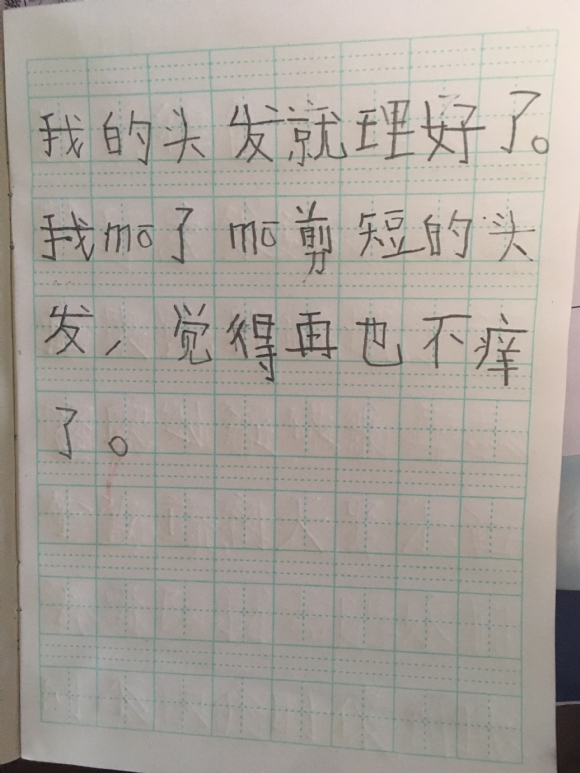 我的头发就理好了。
我mō了mō剪短的头
发，觉得再也不痒
了。